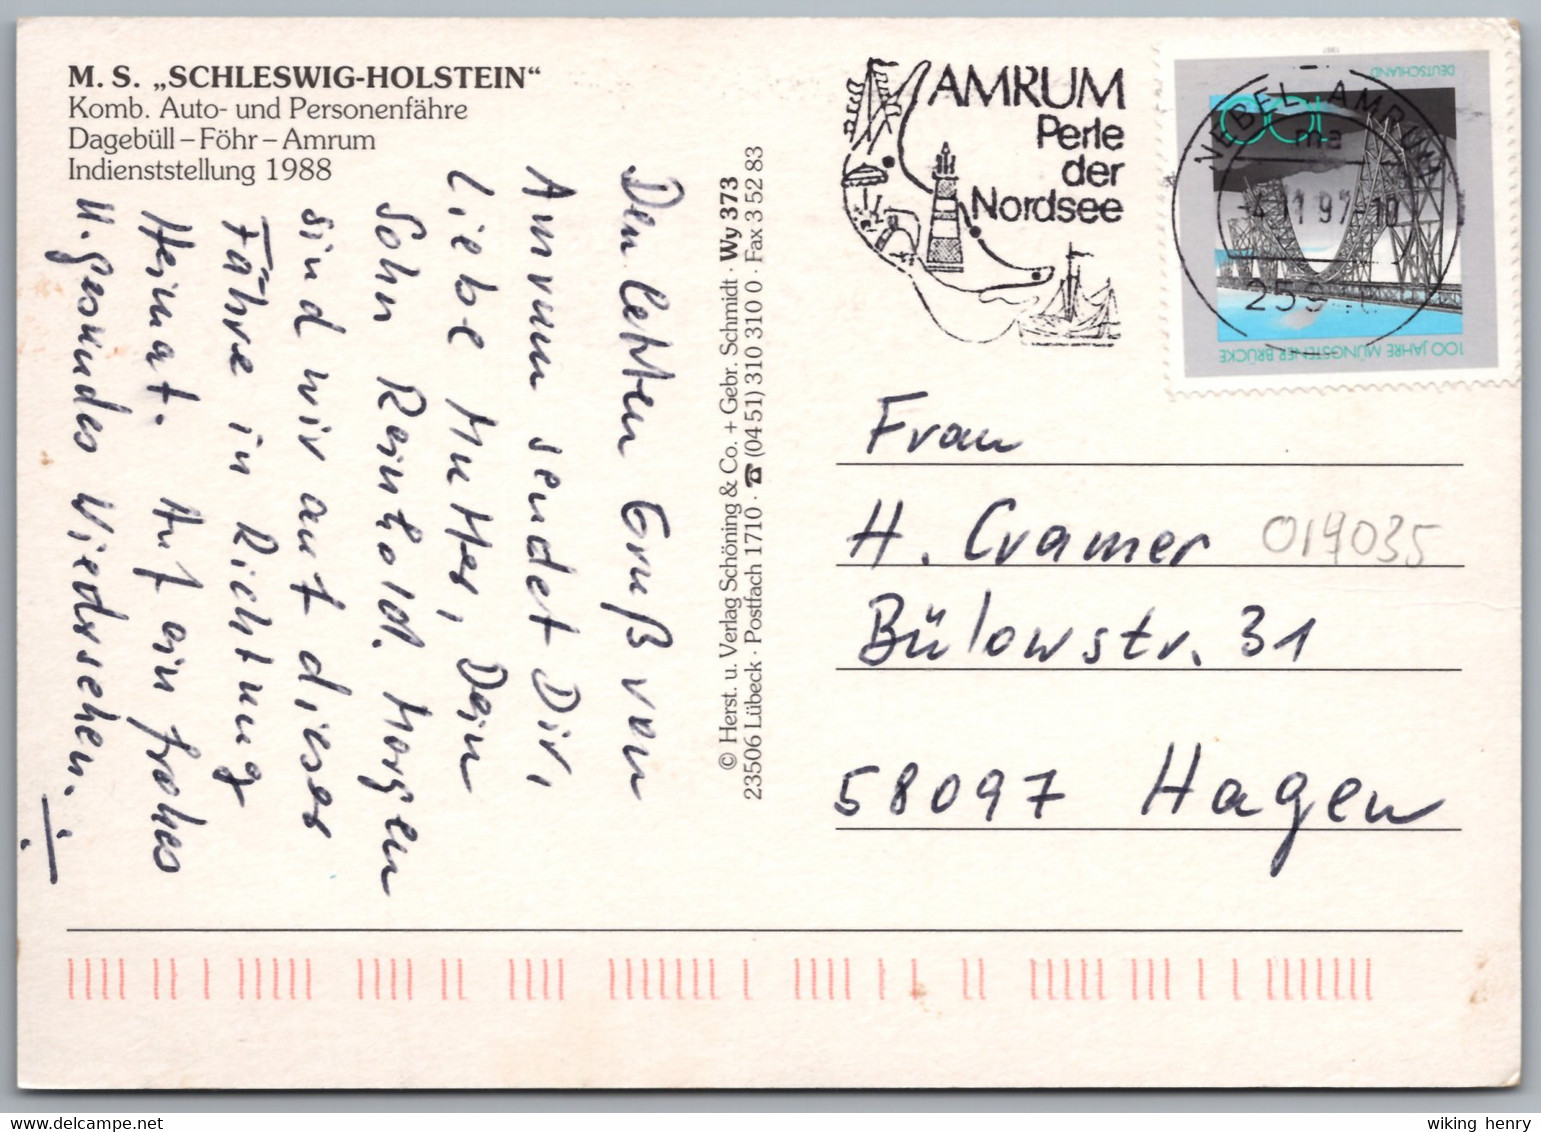 M. S. „SCHLESWIG-HOLSTEIN“
Komb. Auto- und Personenfähre
Dagebüll – Föhr – Amrum
Indienststellung 1988
Den letzten Gruß von
Amrum sendet Dir,
Liebe Mutter, Dein
Sohn Reinhold. Morgen
sind wir auf dieser
Fähre in Richtung
Heimat. Auf ein frohes
u. gesundes Wiedersehen.
© Herst. u. Verlag Schöning & Co. + Gebr. Schmidt · Wy 373
23506 Lübeck · Postfach 1710 · ☎ (04 51) 310 310 0 · Fax 3 52 83
AMRUM
Perle
der
Nordsee
NEBEL, AMRUM
ma
-4.11.97-10
259
1997
DEUTSCHLAND
100
100 JAHRE MÜNGSTENER BRÜCKE
Frau
H. Cramer
019035
Bülowstr. 31
58097 Hagen
wiking henry